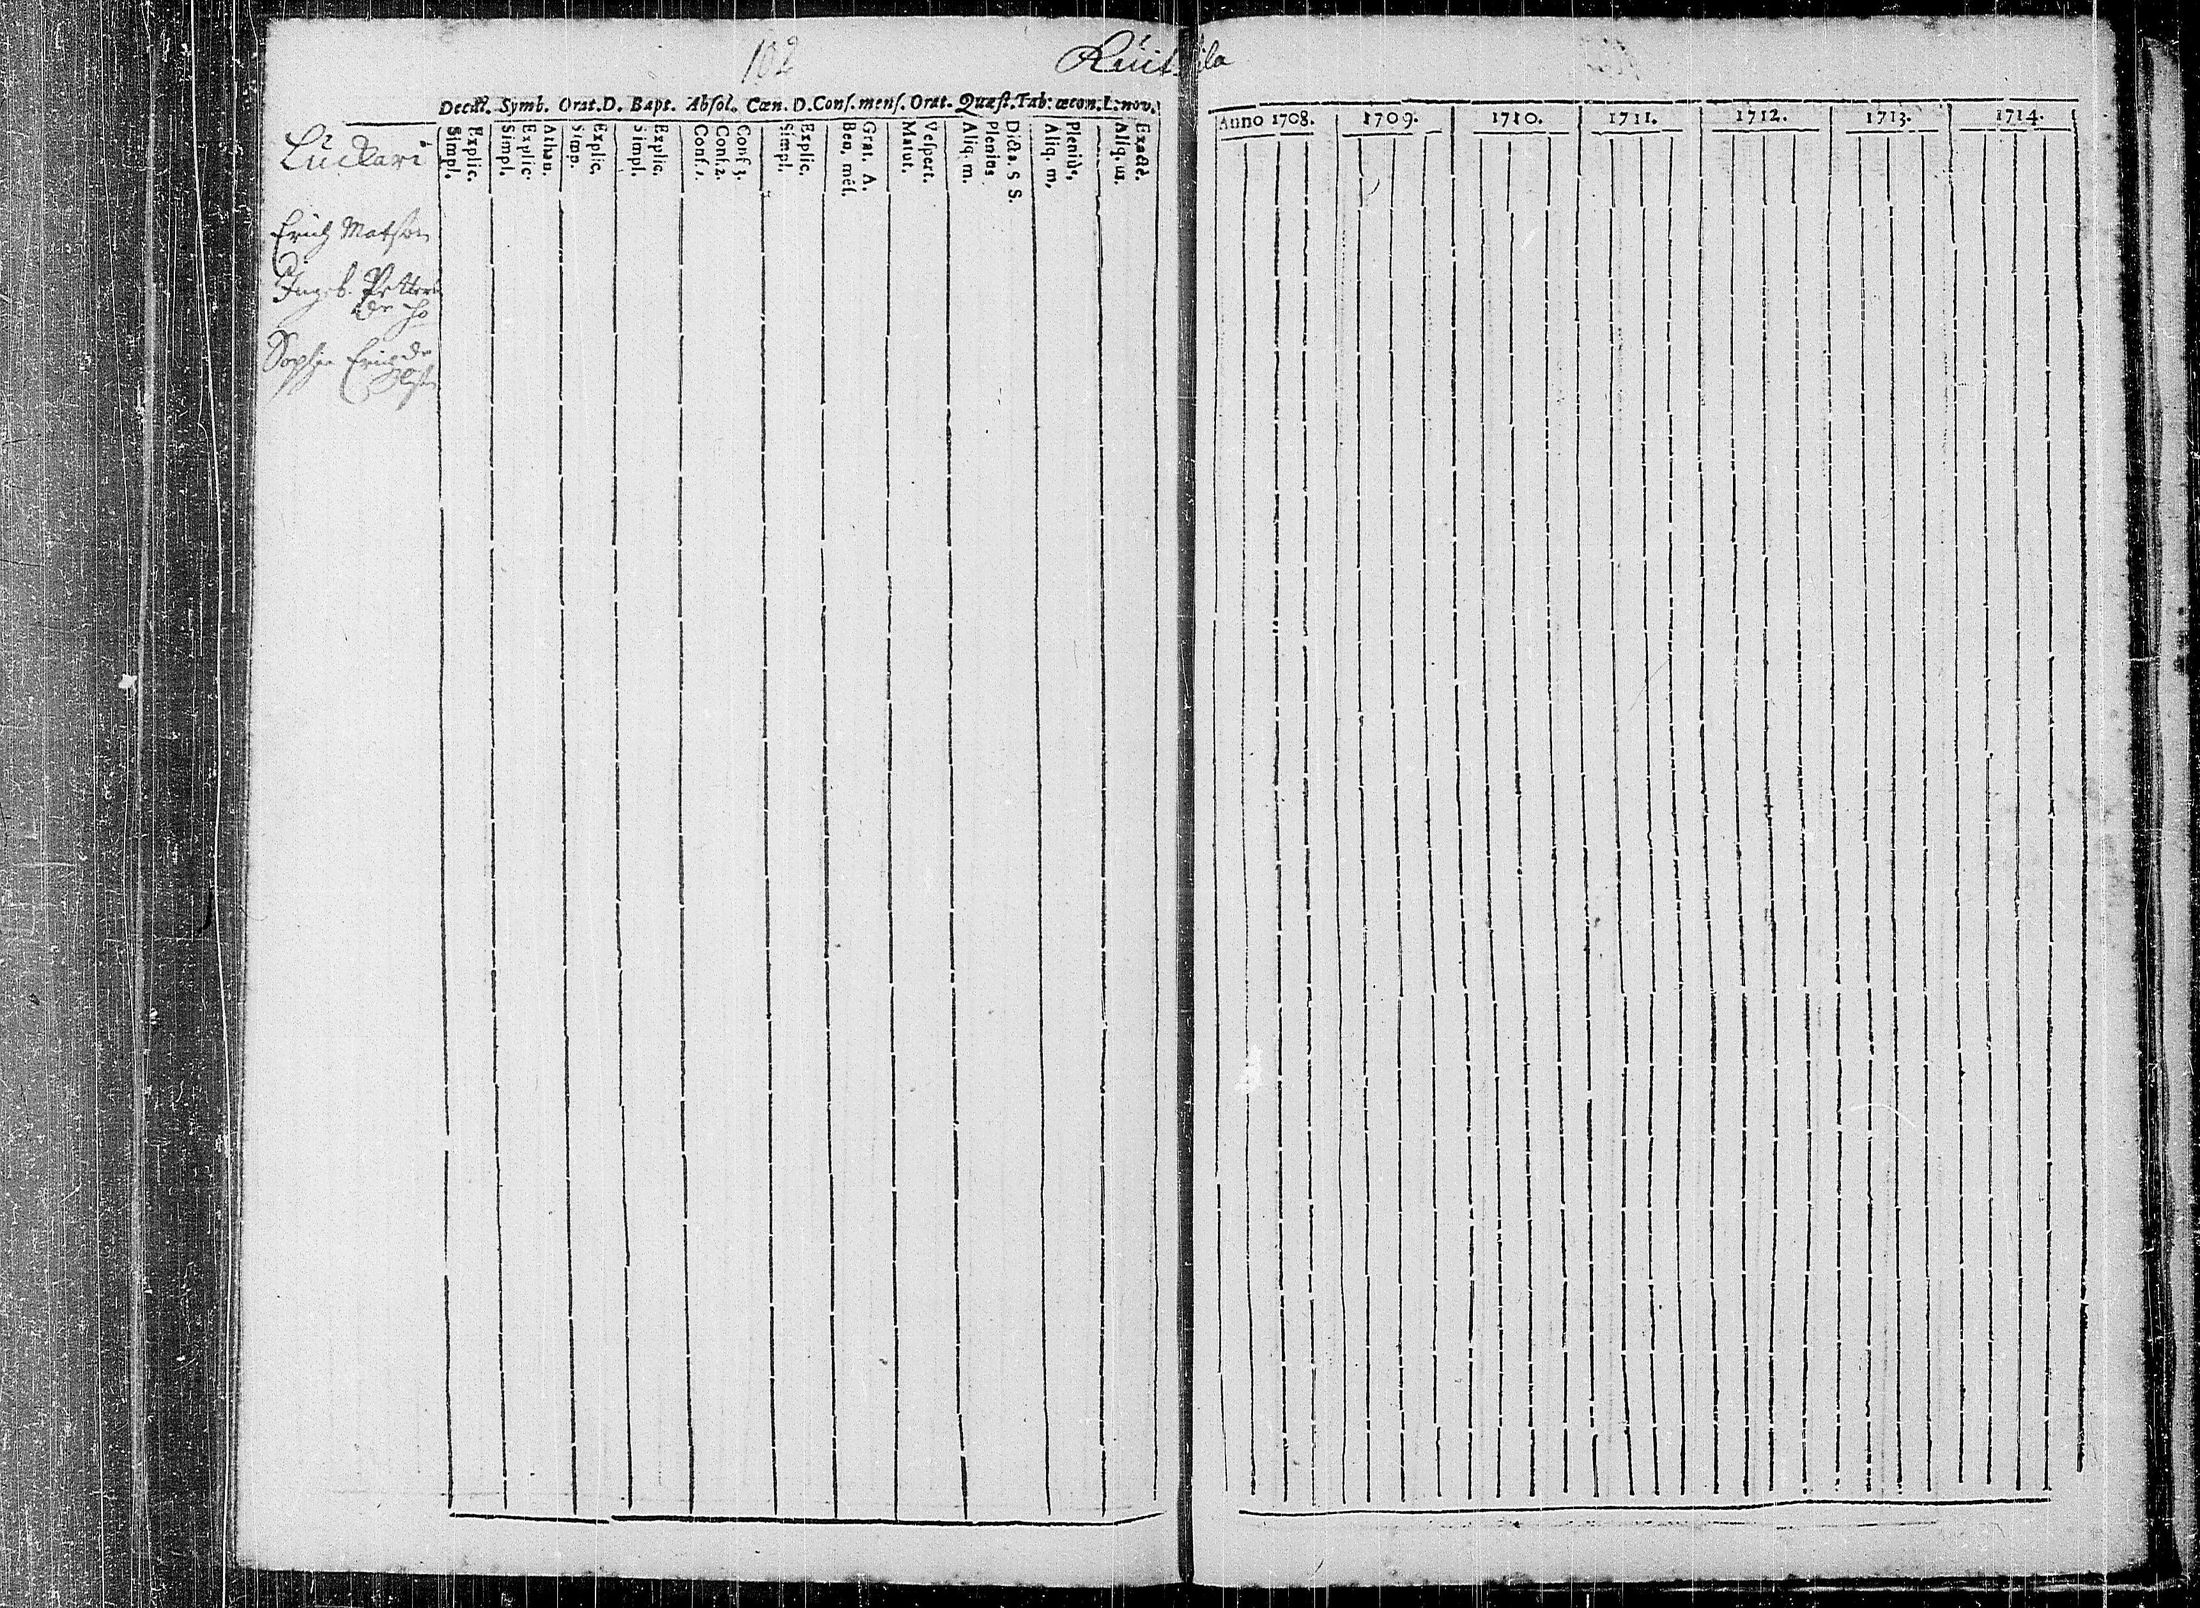 102
Lückari
Decal. Symb. Orat. D. Bapt. Absol. Cœn. D. Conf. mens. Orat. Quæst. Tab: œcon. L: nov.
Simpl. Explic. Simpl. Explic. Athan. Simp. Explic. Simpl. Explic. Conf. 1. Conf. 2. Conf. 3. Simpl. Explic. Ben. mēs. Grat. A. Matut. Vespert. Aliq. m. Plenius Dicta. S S. Aliq. m. Plenius. Aliq. m. Exactè.
Erich Matson
Ingeb. Petters
dr
Sophia Erics dr
Anno 1708. 1709. 1710. 1711. 1712. 1713. 1714.